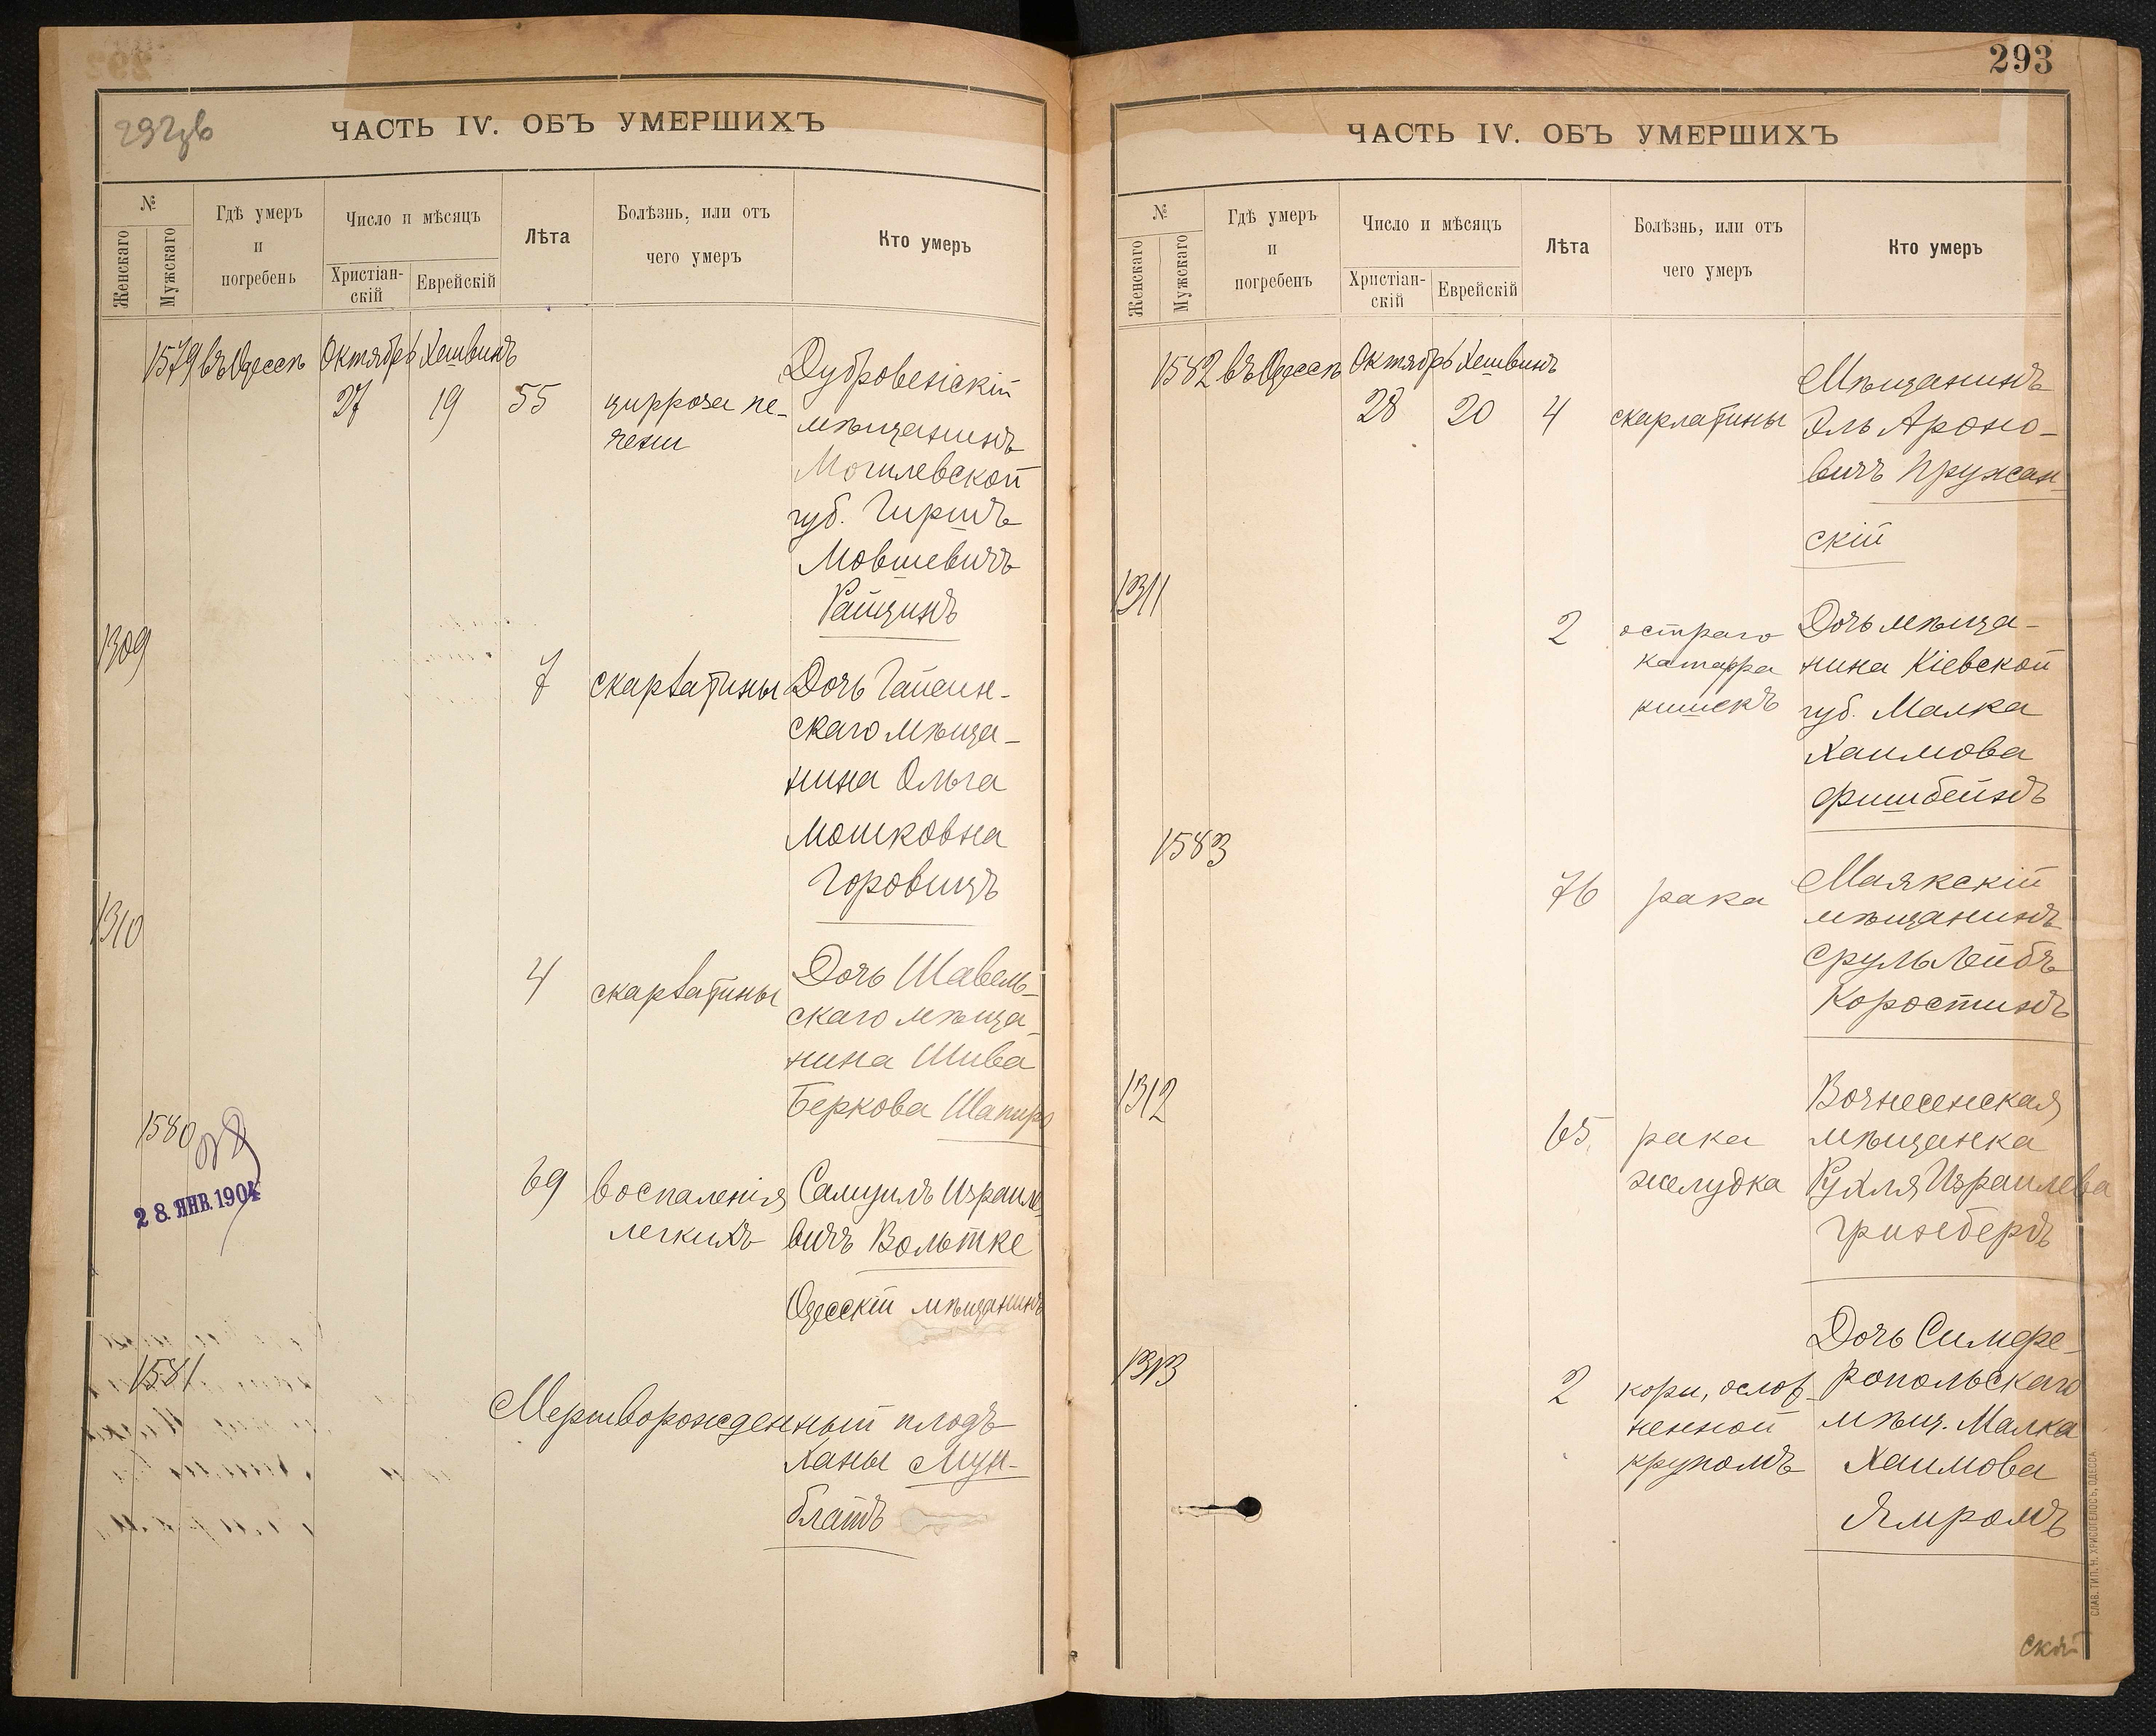 292 об
ЧАСТЬ IV. ОБЪ УМЕРШИХЪ
№
Женскаго
Мужскаго
Гдѣ умеръ
и
погребенъ
Число и мѣсяцъ
Христіан-
скій
Еврейскій
Лѣта
Болѣзнь, или отъ
чего умеръ
Кто умеръ
1579 въ Одессѣ Октябрь Хешвинъ
27 19 55 цирроза пе-
чени
Дубровенскій
мѣщанинъ
Могилевской
губ. Гиршъ
Мовшевичъ
Ращинъ
1309
7 скарлатины Дочь Гайсин-
скаго мѣща-
нина Ольга
Мошковна
Горовицъ
1310
4 скарлатины Дочь Шавель-
скаго мѣща-
нина Шива
Беркова Шапиро
1580
28. ЯНВ. 1904
69 воспаленія Самуилъ Израиле-
легкихъ вичъ Вольтке
Одесскій мѣщанинъ
1581
Мертворожденный плодъ
Ханы Мун-
блатъ
293
ЧАСТЬ IV. ОБЪ УМЕРШИХЪ
№
Женскаго
Мужскаго
Гдѣ умеръ
и
погребенъ
Число и мѣсяцъ
Христіан-
скій
Еврейскій
Лѣта
Болѣзнь, или отъ
чего умеръ
Кто умеръ
1582 въ Одессѣ Октябрь Хешвинъ
28 20 4 скарлатины
Мѣщанинъ
Эль Ароно-
вичъ Пружан-
скій
1311
2 остраго
катарра
кишекъ
Дочь мѣща-
нина Кіевской
губ. Малка
Хаимова
Фишбейнъ
1583
76 рака
Маякскій
мѣщанинъ
Сруль Лейбъ
Коростинъ
1312
65 рака
желудка
Вознесенская
мѣщанка
Рухля Израилева
Гринбергъ
1313
2 кори, ослож-
ненной
крупомъ
Дочь Симфе-
ропольскаго
мѣщ. Малка
Хаимова
Ямромъ
СЛАВ. ТИП. Н. ХРИСОГЕЛОСЪ, ОДЕССА